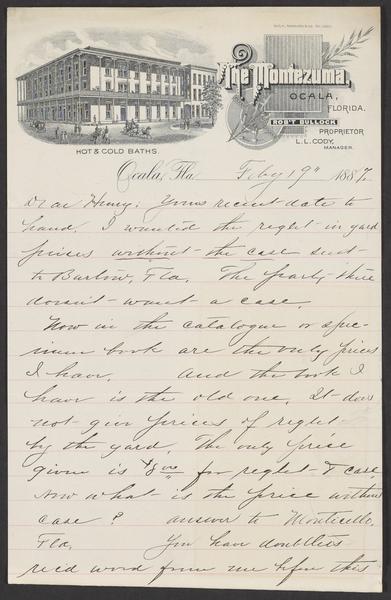 The Montezuma,
OCALA,
FLORIDA.
ROB'T BULLOCK
PROPRIETOR
L.L.CODY,
MANAGER.
HOT & COLD BATHS.
Ocala, Fla. Feby 19" 1887
Dear Henry: Yours recent date to
hand. I wanted the reglet in yard
prices without the case sent
to Bartow, Fla. The party there
doesn't want a case.
Now in the catalogue or spec-
imen book are the only prices
I have. And the book I
have is the old one. It does
not give prices of reglet
by the yard. The only price
given is for reglet & case
Now what is the price without
case? answer to Monticello,
Fla. You have doubtless
rec'd word from me before this